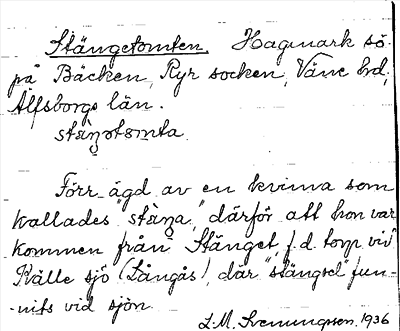 Stängetomten. Hagmark sö.
på Bäcken, Ryr socken, Väne hd,
Älfsborgs län.
stäŋətⱺmta
Förr ägd av en kvinna som
kallades "stäŋa", därför att hon var
kommen från Stänget, f.d. torp vid
Kvälle sjö (Långås), där "stängsel" fun-
-nits vid sjön.
L.M. Svenungsson. 1936